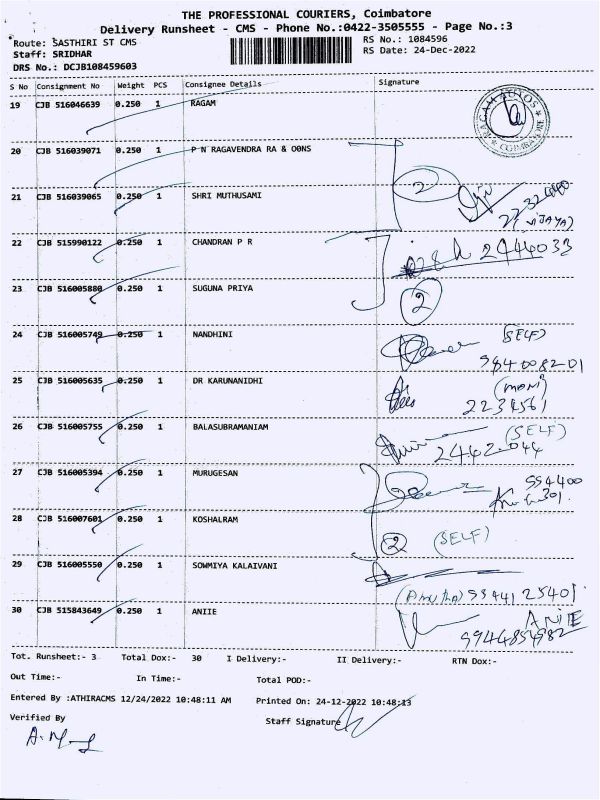 THE PROFESSIONAL COURIERS, Coimbatore
Delivery Runsheet - CMS - Phone No.:0422-3505555 - Page No.:3
Route: SASTHIRI ST CMS RS No.: 1084596
Staff: SRIDHAR RS Date: 24-Dec-2022
DRS No.: DCJB108459603
S No Consignment No Weight PCS Consignee Details Signature
19 CJB 516046639 0.250 1 RAGAM
RAGAM AUTOS COIMBATORE
20 CJB 516039071 0.250 1 P N RAGAVENDRA RA & OONS
2
21 CJB 516039065 0.250 1 SHRI MUTHUSAMI
(VIJAYA)
22 CJB 515990122 0.250 1 CHANDRAN P R
2444033
23 CJB 516005880 0.250 1 SUGUNA PRIYA
2
24 CJB 516005749 0.250 1 NANDHINI
(SELF)
984008201
25 CJB 516005635 0.250 1 DR KARUNANIDHI
(MOM)
2234561
26 CJB 516005755 0.250 1 BALASUBRAMANIAM
(SELF)
2442044
27 CJB 516005394 0.250 1 MURUGESAN
994400
301
28 CJB 516007601 0.250 1 KOSHALRAM
2 (SELF)
29 CJB 516005550 0.250 1 SOWMIYA KALAIVANI
99441 25401
30 CJB 515843649 0.250 1 ANIIE
ANIIE
Tot. Runsheet:- 3 Total Dox:- 30 I Delivery:- II Delivery:- RTN Dox:-
Out Time:- In Time:- Total POD:-
Entered By :ATHIRACMS 12/24/2022 10:48:11 AM Printed On: 24-12-2022 10:48:13
Verified By Staff Signature